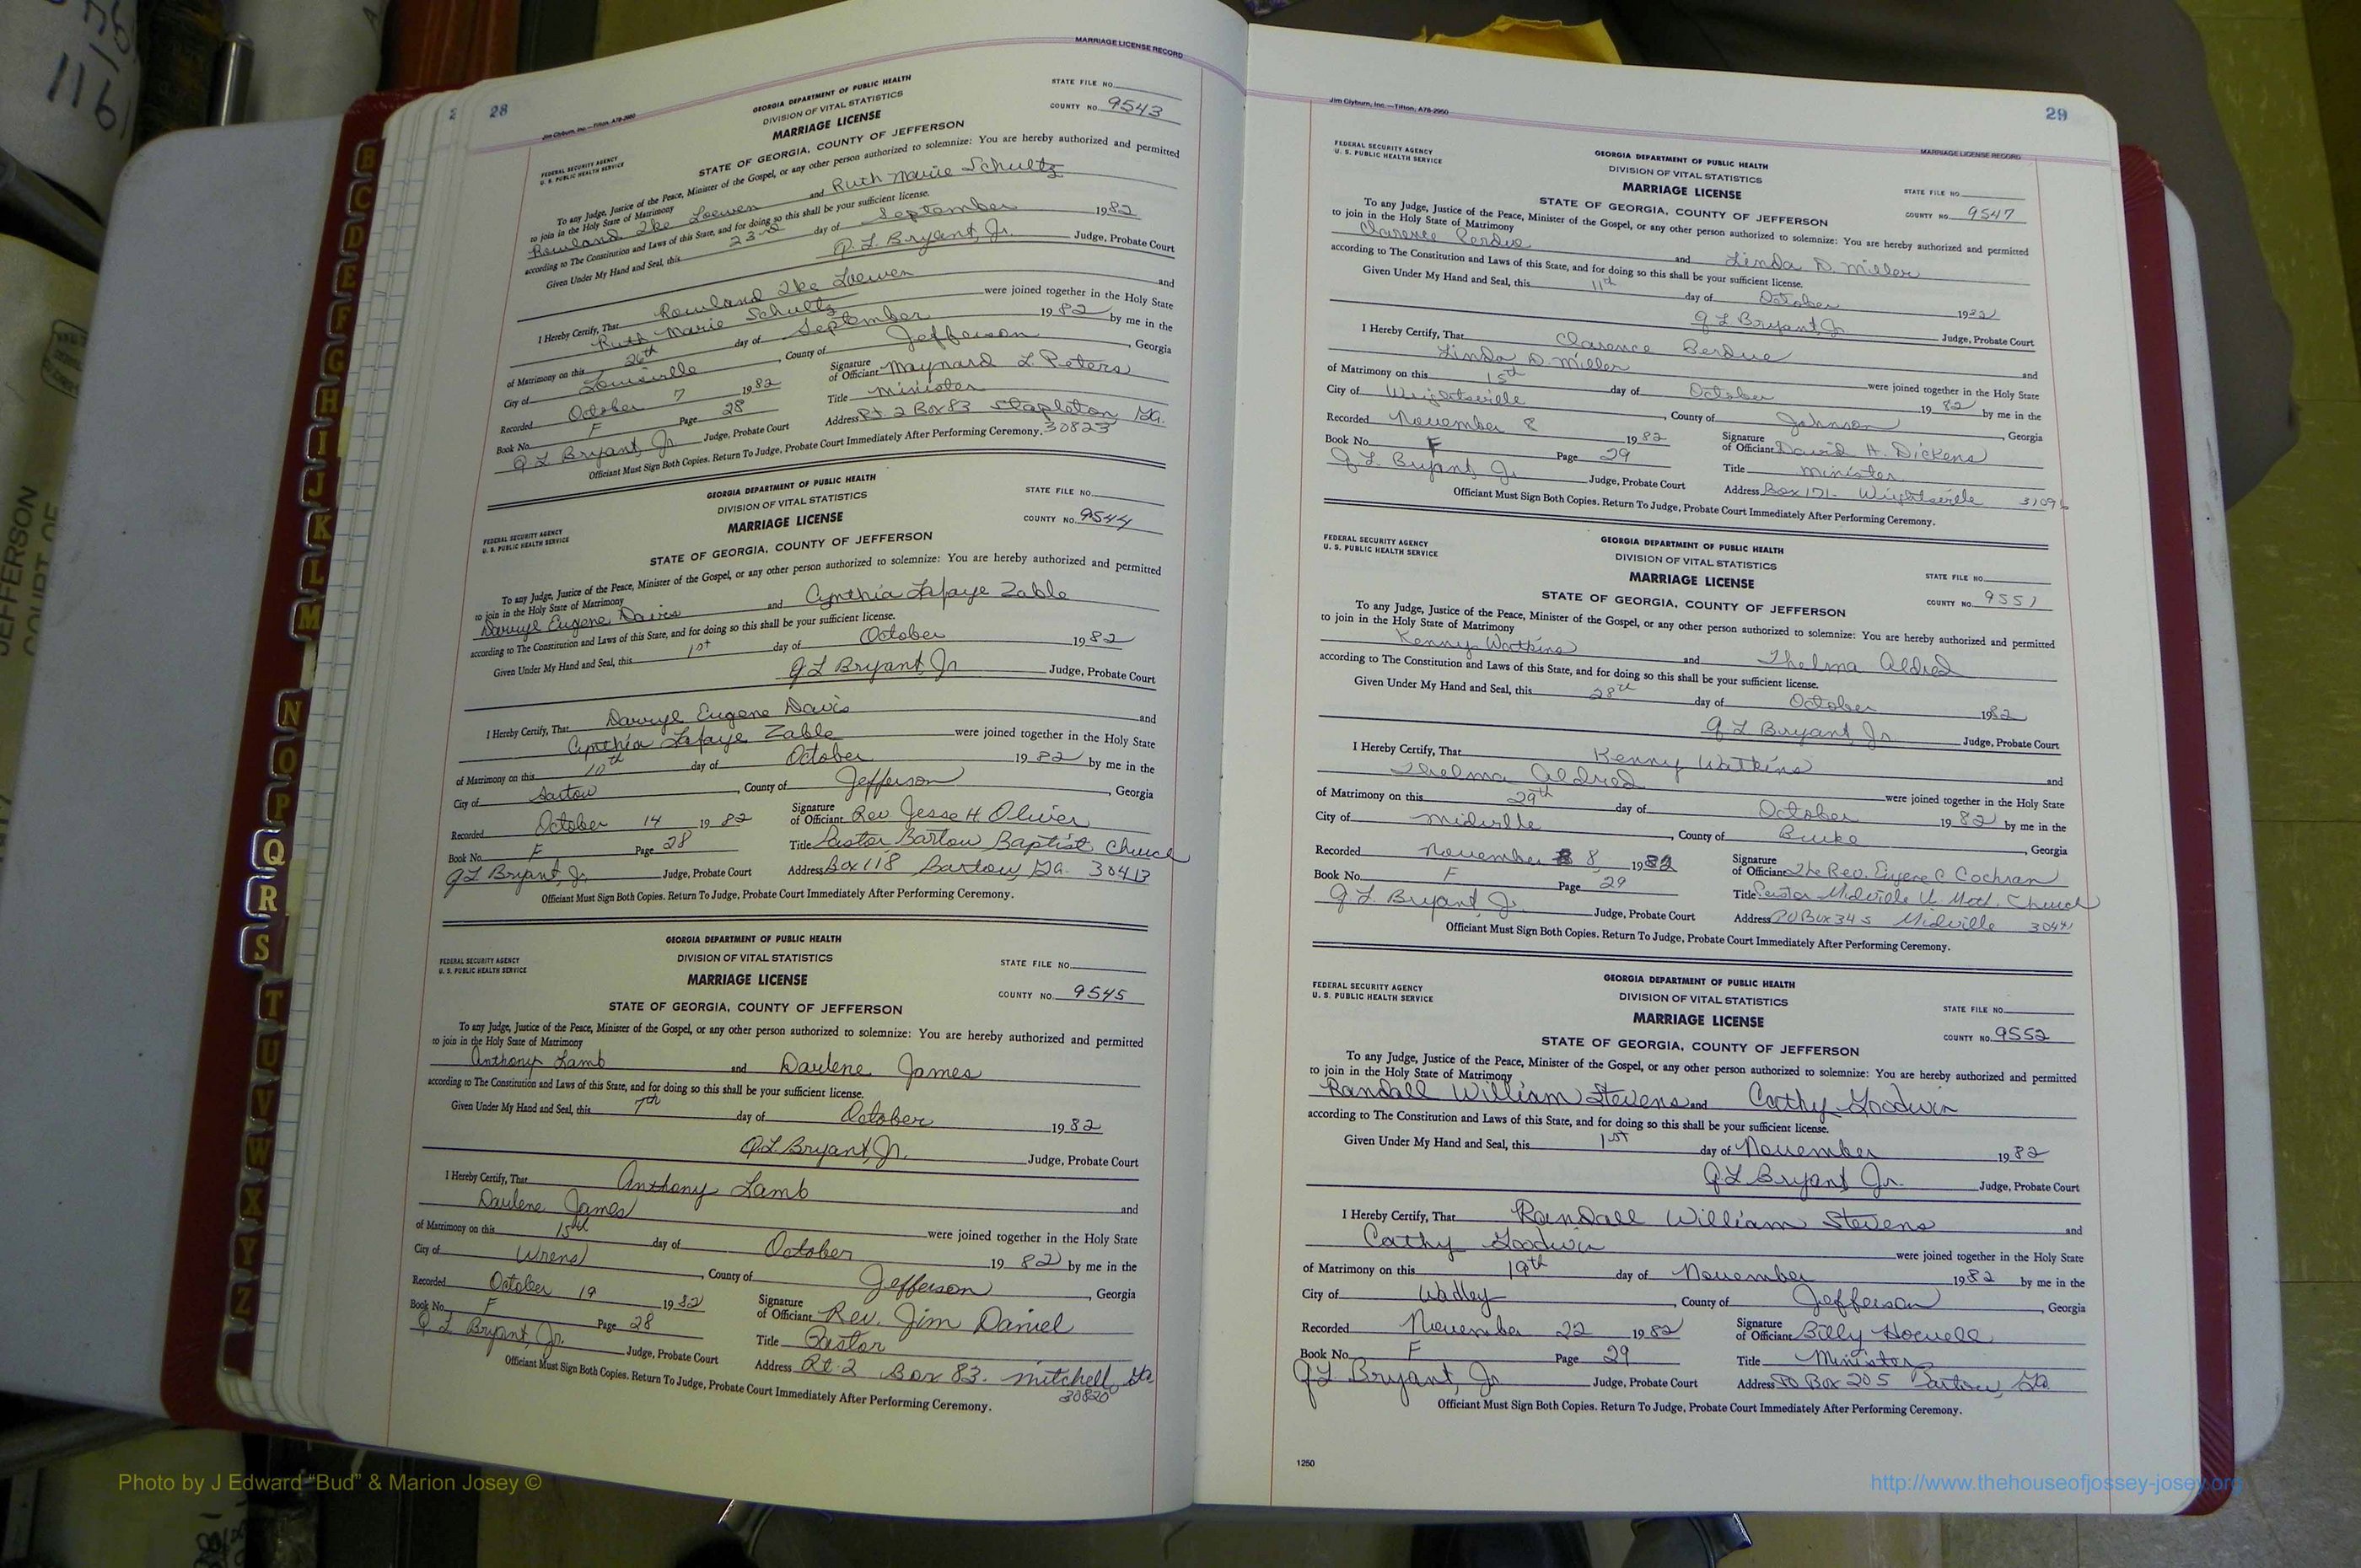 28
MARRIAGE LICENSE RECORD
Jim Clyburn, Inc.—Tifton, A78-2950
GEORGIA DEPARTMENT OF PUBLIC HEALTH
DIVISION OF VITAL STATISTICS
MARRIAGE LICENSE
STATE FILE NO.
COUNTY NO. 9543
FEDERAL SECURITY AGENCY
U. S. PUBLIC HEALTH SERVICE
STATE OF GEORGIA, COUNTY OF JEFFERSON
To any Judge, Justice of the Peace, Minister of the Gospel, or any other person authorized to solemnize: You are hereby authorized and permitted
to join in the Holy State of Matrimony
Rowland Ike Loewen and Ruth Marie Schultz
according to The Constitution and Laws of this State, and for doing so this shall be your sufficient license.
Given Under My Hand and Seal, this 23rd day of September 1982
Q. L. Bryant, Jr. Judge, Probate Court
I Hereby Certify, That Rowland Ike Loewen and
Ruth Marie Schultz were joined together in the Holy State
of Matrimony on this 26th day of September 1982 by me in the
City of Louisville, County of Jefferson, Georgia
Recorded October 7 1982
Signature of Officiant Maynard L. Peters
Book No. F Page 28
Title Minister
Q L Bryant, Jr. Judge, Probate Court
Address Rt. 2 Box 83 Stapleton Ga.
30823
Officiant Must Sign Both Copies. Return To Judge, Probate Court Immediately After Performing Ceremony.
GEORGIA DEPARTMENT OF PUBLIC HEALTH
DIVISION OF VITAL STATISTICS
MARRIAGE LICENSE
STATE FILE NO.
COUNTY NO. 9544
FEDERAL SECURITY AGENCY
U. S. PUBLIC HEALTH SERVICE
STATE OF GEORGIA, COUNTY OF JEFFERSON
To any Judge, Justice of the Peace, Minister of the Gospel, or any other person authorized to solemnize: You are hereby authorized and permitted
to join in the Holy State of Matrimony
Darryl Eugene Davis and Cynthia Lafaye Zable
according to The Constitution and Laws of this State, and for doing so this shall be your sufficient license.
Given Under My Hand and Seal, this 1st day of October 1982
Q L Bryant, Jr Judge, Probate Court
I Hereby Certify, That Darryl Eugene Davis and
Cynthia Lafaye Zable were joined together in the Holy State
of Matrimony on this 10th day of October 1982 by me in the
City of Bartow, County of Jefferson, Georgia
Recorded October 14 1982
Signature of Officiant Rev Jesse H. Oliver
Book No. F Page 28
Title Pastor Bartow Baptist Church
Q L Bryant, Jr. Judge, Probate Court
Address Box 118 Bartow, Ga. 30413
Officiant Must Sign Both Copies. Return To Judge, Probate Court Immediately After Performing Ceremony.
GEORGIA DEPARTMENT OF PUBLIC HEALTH
DIVISION OF VITAL STATISTICS
MARRIAGE LICENSE
STATE FILE NO.
COUNTY NO. 9545
FEDERAL SECURITY AGENCY
U. S. PUBLIC HEALTH SERVICE
STATE OF GEORGIA, COUNTY OF JEFFERSON
To any Judge, Justice of the Peace, Minister of the Gospel, or any other person authorized to solemnize: You are hereby authorized and permitted
to join in the Holy State of Matrimony
Anthony Lamb and Darlene James
according to The Constitution and Laws of this State, and for doing so this shall be your sufficient license.
Given Under My Hand and Seal, this 7th day of October 1982
Q. L. Bryant, Jr. Judge, Probate Court
I Hereby Certify, That Anthony Lamb and
Darlene James were joined together in the Holy State
of Matrimony on this 15th day of October 1982 by me in the
City of Wrens, County of Jefferson, Georgia
Recorded October 19 1982
Signature of Officiant Rev. Jim Daniel
Book No. F Page 28
Title Pastor
Q L Bryant, Jr. Judge, Probate Court
Address Rt. 2 Box 83. Mitchell, Ga
30820
Officiant Must Sign Both Copies. Return To Judge, Probate Court Immediately After Performing Ceremony.
29
Jim Clyburn, Inc.—Tifton, A78-2950
MARRIAGE LICENSE RECORD
FEDERAL SECURITY AGENCY
U. S. PUBLIC HEALTH SERVICE
GEORGIA DEPARTMENT OF PUBLIC HEALTH
DIVISION OF VITAL STATISTICS
MARRIAGE LICENSE
STATE FILE NO.
COUNTY NO. 9547
STATE OF GEORGIA, COUNTY OF JEFFERSON
To any Judge, Justice of the Peace, Minister of the Gospel, or any other person authorized to solemnize: You are hereby authorized and permitted
to join in the Holy State of Matrimony
Clarence Perdue and Linda D. Miller
according to The Constitution and Laws of this State, and for doing so this shall be your sufficient license.
Given Under My Hand and Seal, this 11th day of October 1982
Q L Bryant, Jr. Judge, Probate Court
I Hereby Certify, That Clarence Perdue and
Linda D. Miller were joined together in the Holy State
of Matrimony on this 15th day of October 1982 by me in the
City of Wrightsville, County of Johnson, Georgia
Recorded November 8 1982
Signature of Officiant David H. Dickens
Book No. F Page 29
Title Minister
Q. L. Bryant, Jr. Judge, Probate Court
Address Box 171- Wrightsville 31096
Officiant Must Sign Both Copies. Return To Judge, Probate Court Immediately After Performing Ceremony.
FEDERAL SECURITY AGENCY
U. S. PUBLIC HEALTH SERVICE
GEORGIA DEPARTMENT OF PUBLIC HEALTH
DIVISION OF VITAL STATISTICS
MARRIAGE LICENSE
STATE FILE NO.
COUNTY NO. 9551
STATE OF GEORGIA, COUNTY OF JEFFERSON
To any Judge, Justice of the Peace, Minister of the Gospel, or any other person authorized to solemnize: You are hereby authorized and permitted
to join in the Holy State of Matrimony
Kenny Watkins and Thelma Aldred
according to The Constitution and Laws of this State, and for doing so this shall be your sufficient license.
Given Under My Hand and Seal, this 28th day of October 1982
Q L Bryant, Jr. Judge, Probate Court
I Hereby Certify, That Kenny Watkins and
Thelma Aldred were joined together in the Holy State
of Matrimony on this 29th day of October 1982 by me in the
City of Midville, County of Burke, Georgia
Recorded November 8, 1982
Signature of Officiant The Rev. Eugene C Cochran
Book No. F Page 29
Title Pastor Midville U. Meth. Church
Q L Bryant, Jr. Judge, Probate Court
Address PO Box 345 Midville 30441
Officiant Must Sign Both Copies. Return To Judge, Probate Court Immediately After Performing Ceremony.
FEDERAL SECURITY AGENCY
U. S. PUBLIC HEALTH SERVICE
GEORGIA DEPARTMENT OF PUBLIC HEALTH
DIVISION OF VITAL STATISTICS
MARRIAGE LICENSE
STATE FILE NO.
COUNTY NO. 9552
STATE OF GEORGIA, COUNTY OF JEFFERSON
To any Judge, Justice of the Peace, Minister of the Gospel, or any other person authorized to solemnize: You are hereby authorized and permitted
to join in the Holy State of Matrimony
Randall William Stevens and Cathy Goodwin
according to The Constitution and Laws of this State, and for doing so this shall be your sufficient license.
Given Under My Hand and Seal, this 1st day of November 1982
Q L Bryant, Jr. Judge, Probate Court
I Hereby Certify, That Randall William Stevens and
Cathy Goodwin were joined together in the Holy State
of Matrimony on this 19th day of November 1982 by me in the
City of Wadley, County of Jefferson, Georgia
Recorded November 22 1982
Signature of Officiant Billy Howell
Book No. F Page 29
Title Minister
Q L Bryant, Jr Judge, Probate Court
Address PO Box 205 Bartow, Ga.
Officiant Must Sign Both Copies. Return To Judge, Probate Court Immediately After Performing Ceremony.
1250
B
C
D
E
F
G
H
I
J
K
L
M
N
O
P
Q
R
S
T
U
V
W
X
Y
Z
JEFFERSON
COURT OF
Photo by J Edward “Bud” & Marion Josey ©
http://www.thehouseofjossey-josey.org